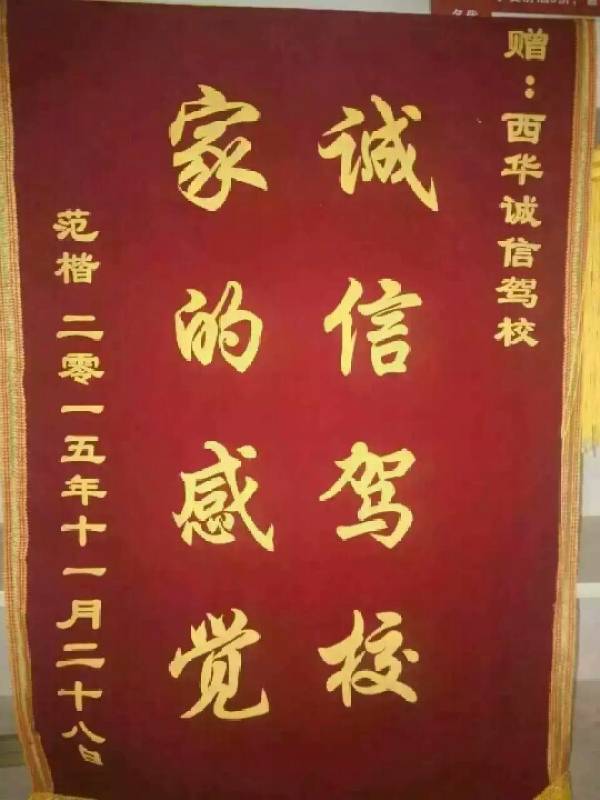 赠：西华诚信驾校
诚信驾校
家的感觉
范楷 二零一五年十一月二十八日